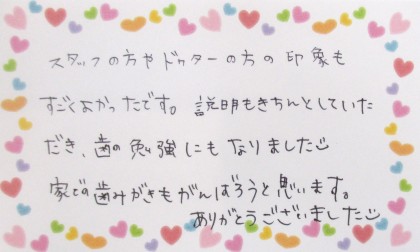 スタッフの方やドクターの方の印象も
すごくよかったです。説明もきちんとしていた
だき、歯の勉強にもなりました
家での歯みがきもがんばろうと思います。
ありがとうございました